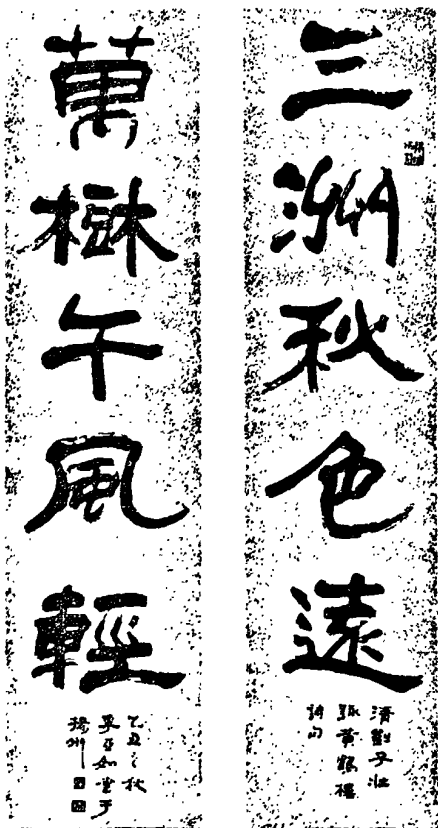 三洲秋色遠
清劉子壯
黃鶴樓
詩句
萬樹午風輕
乙丑之秋
亞如書于
揚州